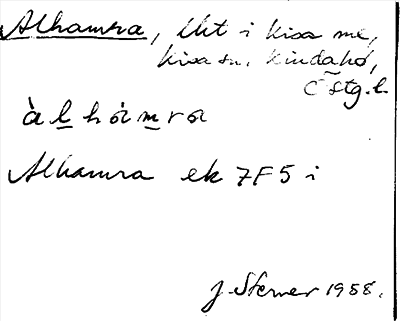 Alhamra, lht i Kisa sn,
Kisa sn, Kinda hd,
Östg. l.
àlhámra
Alhamra ek 7F5 i
J. Sterner 1988.